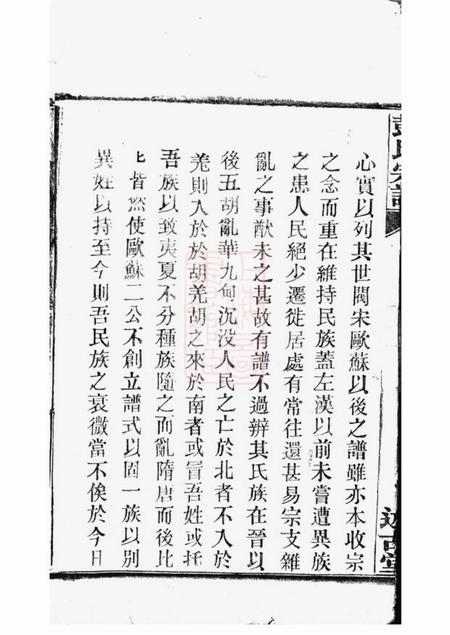 彭氏宗譜
述古堂
心實以列其世閥宋歐蘇以後之譜雖亦本收宗
之念而重在維持民族蓋左漢以前未嘗遭異族
之患人民絕少遷徙居處有常往還甚易宗支雜
亂之事猷未之甚故有譜不過辨其氏族在晉以
後五胡亂華九甸沉没人民之亡於北者不入於
羌則入於於胡羌胡之來於南者或冒吾姓或托
吾族以致夷夏不分種族隨之而亂隋唐而後比
比皆然使歐蘇二公不創立譜式以固一族以別
異姓以持至今則吾民族之衰微當不俟於今日